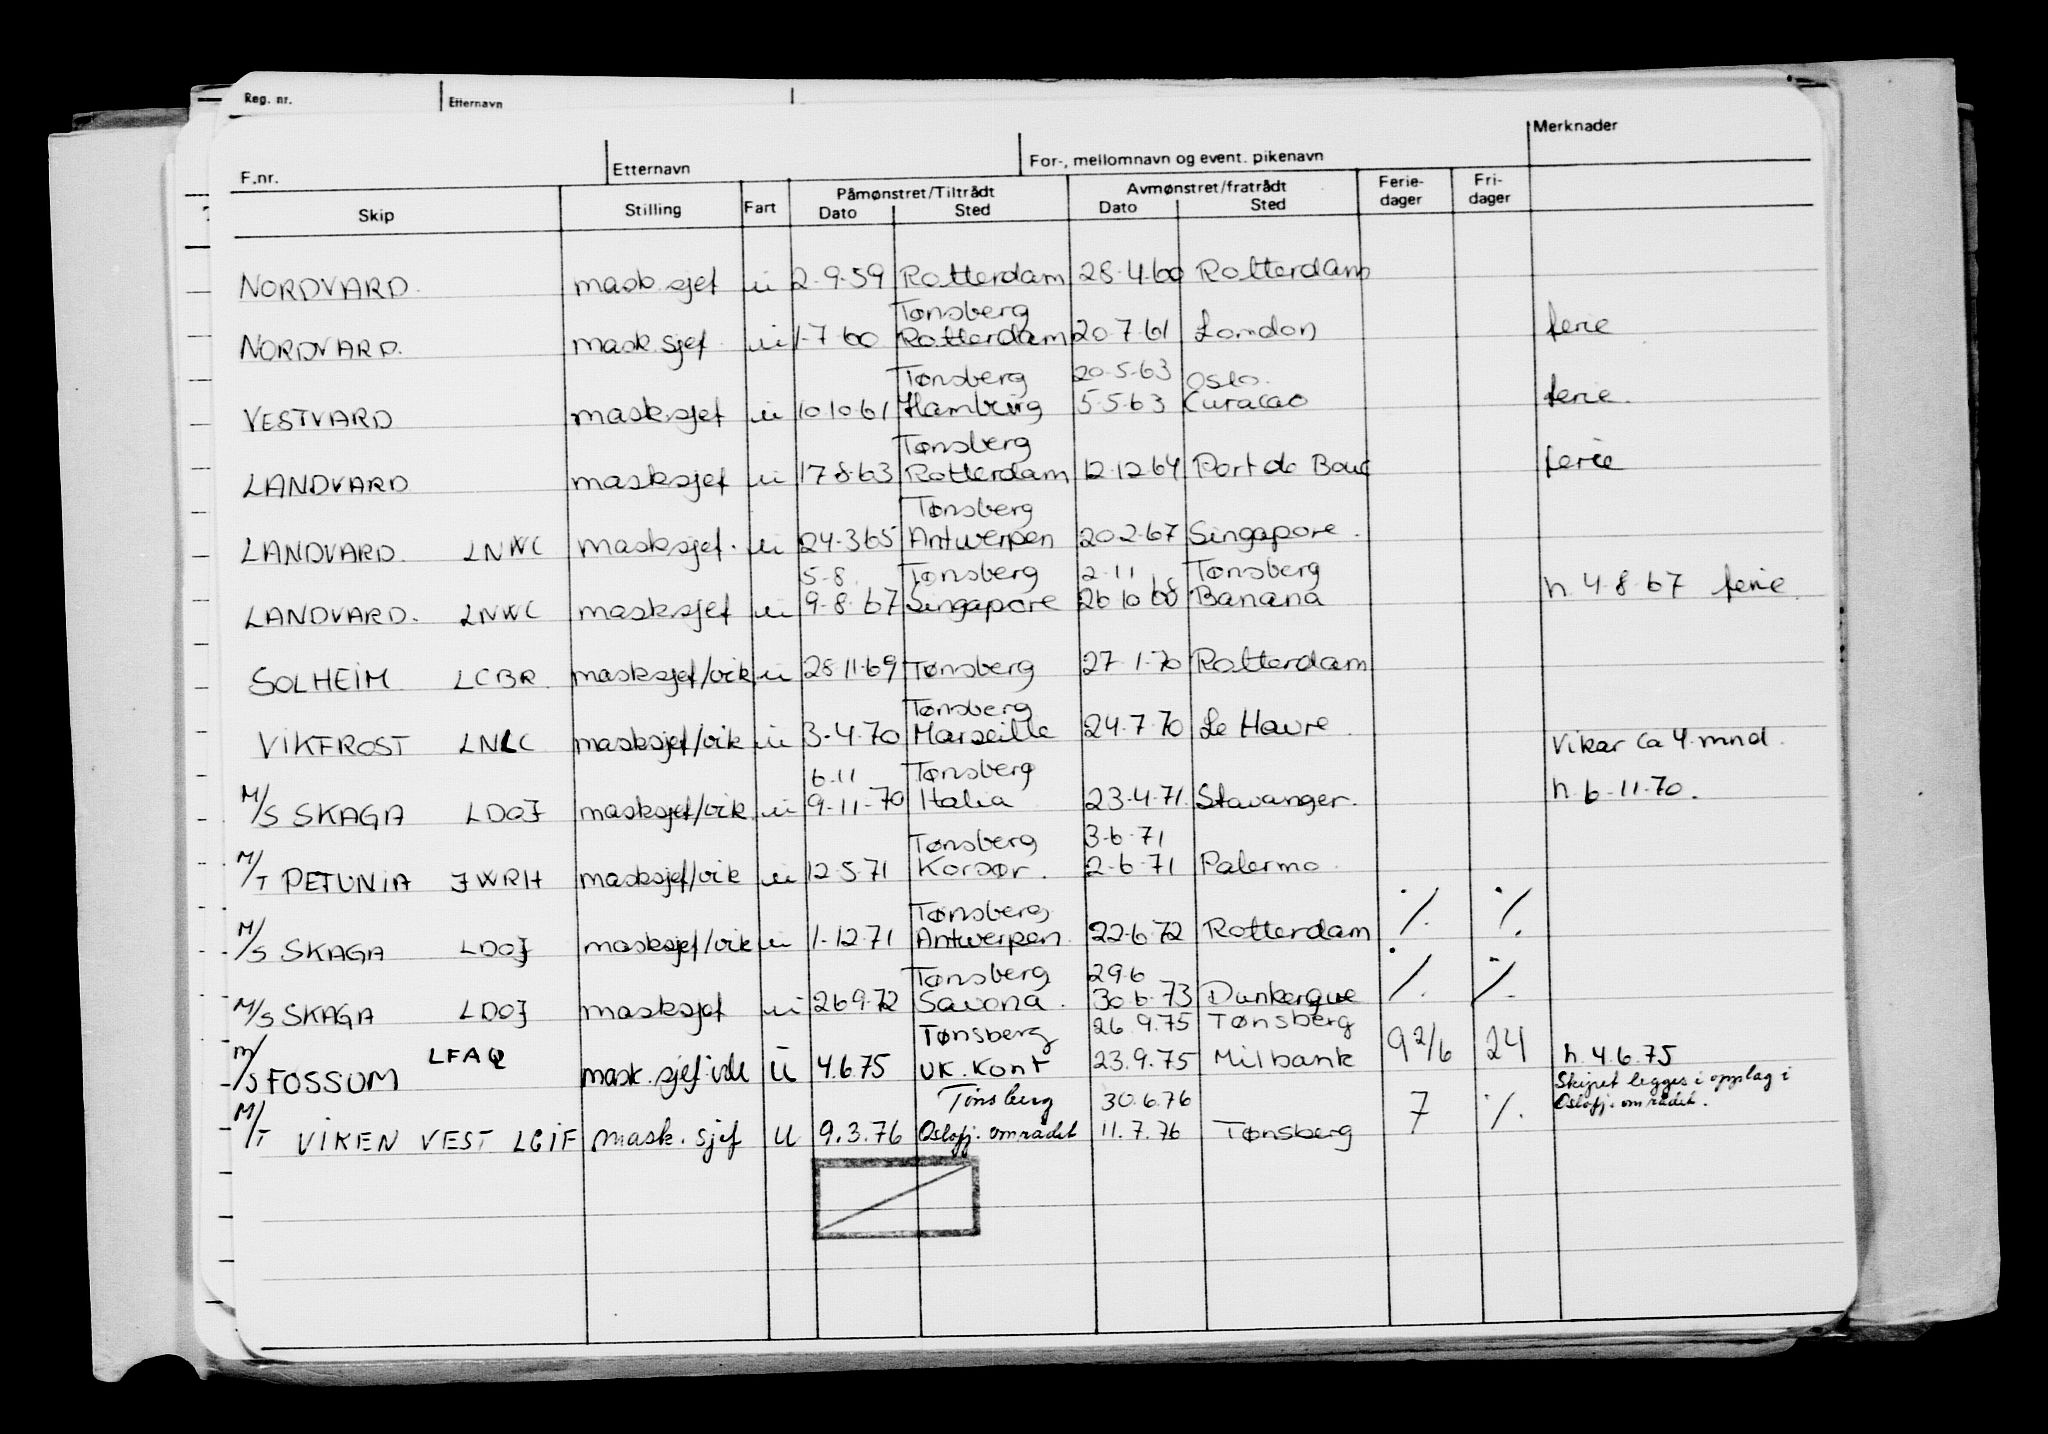 Reg. nr. Etternavn
Merknader
F.nr. Etternavn For-, mellomnavn og event. pikenavn
Påmønstret/Tiltrådt Avmønstret/fratrådt Ferie- Fri-
Skip Stilling Fart Dato Sted Dato Sted dager dager
NORDVARD. mask.sjef u 2-9-59 Rotterdam 28-4.60 Rotterdam
Tønsberg
NORDVARD. mask.sjef u 1-7 60 Rotterdam 20-7.61 London ferie
Tønsberg 20-5-63 Oslo.
VESTVARD mask.sjef u 10 10 61 Hamburg 5-5-63 Curacao ferie.
Tønsberg
LANDVARD masksjef u 17 8-63 Rotterdam 12-12 64 Port de Bouc ferie
Tønsberg
LANDVARD. LNWC masksjef. u 24-3 65 Antwerpen 20-2-67 Singapore.
5-8. Tønsberg 2-11 Tønsberg
LANDVARD. LNWC masksjef u 9-8-67 Singapore 26 10 68 Banana h. 4-8-67 ferie.
SOLHEIM LCBR masksjef/vik u 28-11-69 Tønsberg 27-1-70 Rotterdam
Tønsberg
VIKFROST LNLC masksjef/vik u 3-4-70 Marseille 24-7-70 Le Havre. Vikar ca 4 mnd.
6-11 Tønsberg
M/S SKAGA LDOJ masksjef/vik u 9-11-70 Italia 23-4-71 Stavanger. h. 6-11-70.
Tønsberg 3-6-71
M/T PETUNIA JWRH masksjef/vik u 12-5-71 Korsør. 2-6-71 Palermo.
Tønsberg
M/S SKAGA LDOJ masksjef/vik u 1-12-71 Antwerpen 22-6-72 Rotterdam ٪ ٪
Tønsberg 29.6
M/S SKAGA LDOJ masksjef u 26 9-72 Savona. 30-6-73 Dunkerque ٪ ٪
Tønsberg 26.9.75 Tønsberg
M/S FOSSUM LFAQ mask.sjef u 4.6 75 UK.Kont 23.9.75 Milbank 9 2/6 24 h. 4.6.75
Tønsberg 30.6.76 Skipet legges i opplag i
M/T VIKEN VEST LGIF mask. sjef u 9.3.76 Oslofj. området 11.7.76 Tønsberg 7 ٪ Oslofj. området.